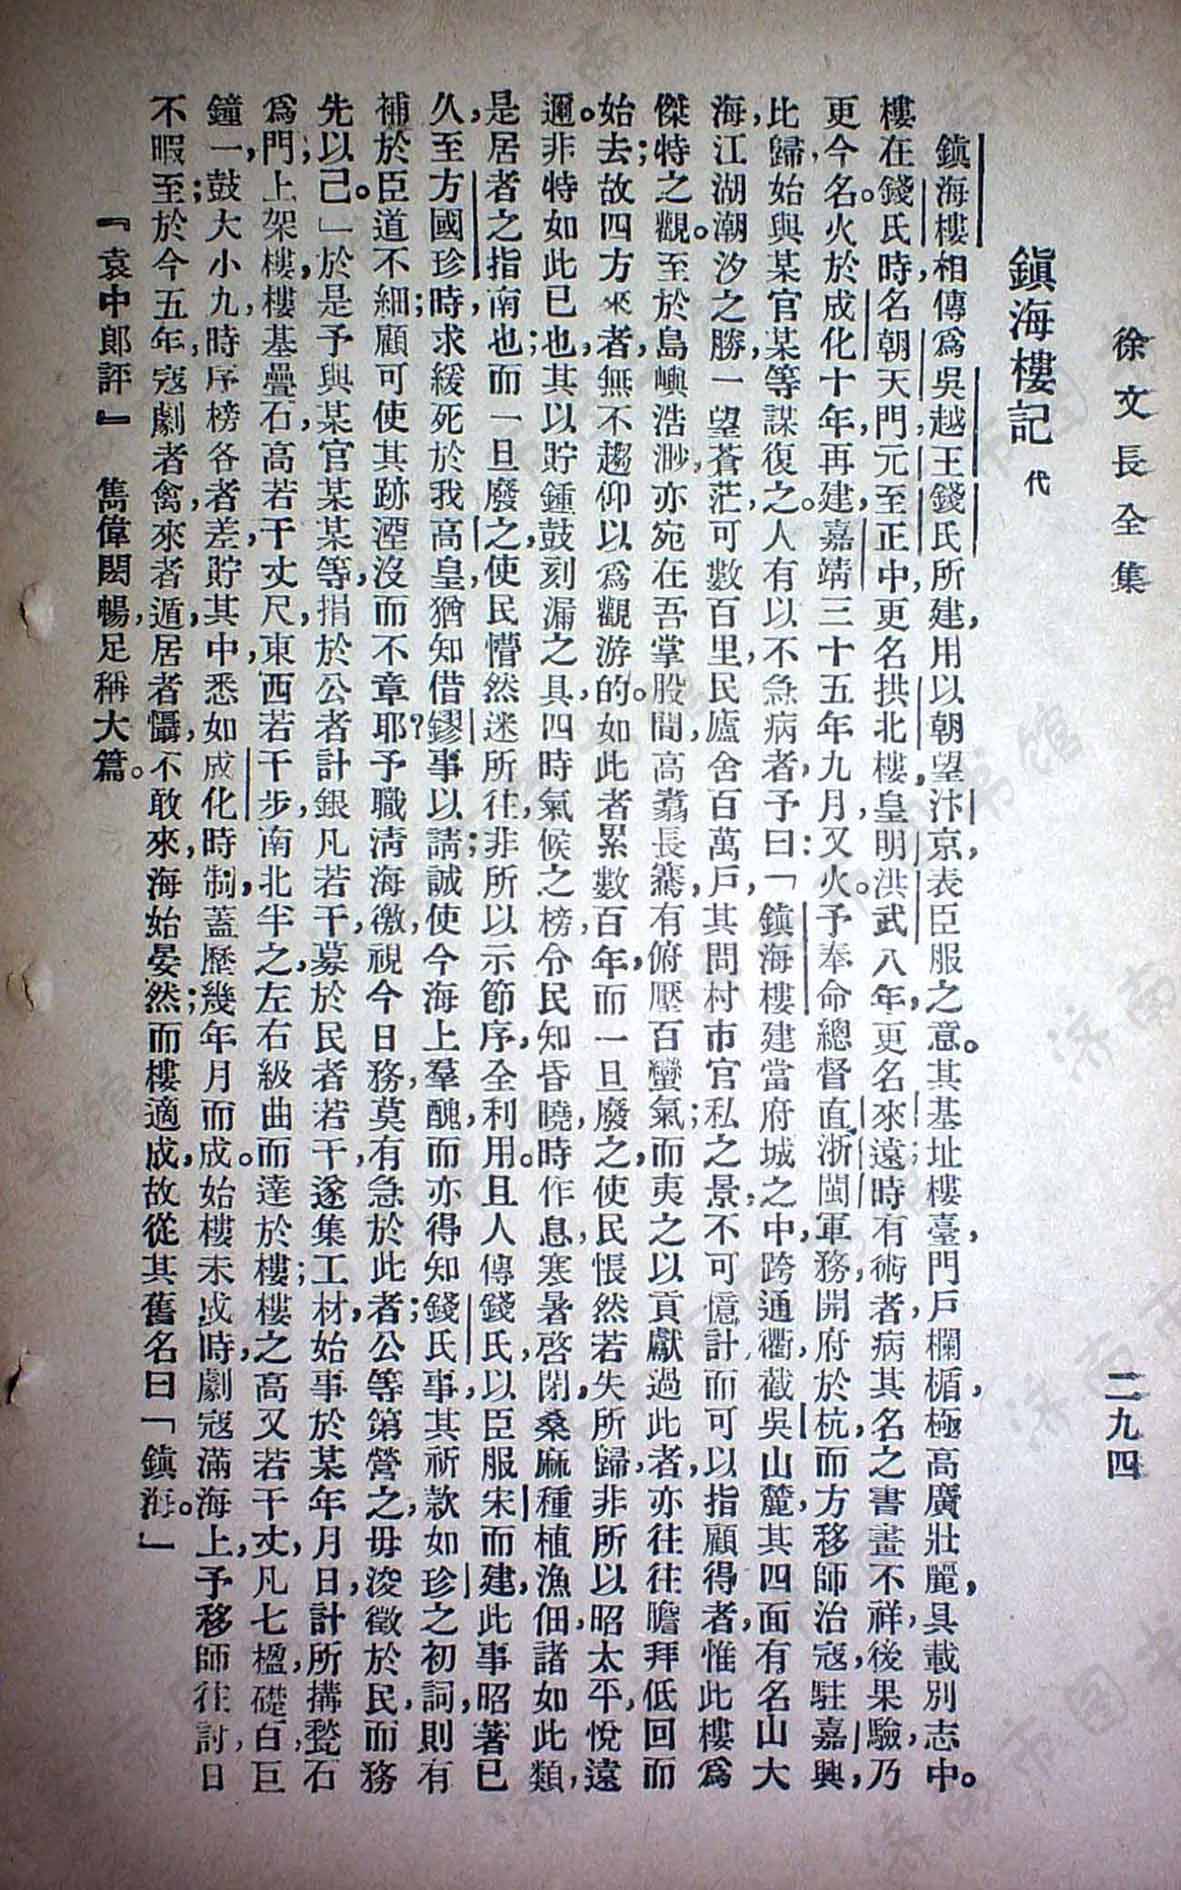 徐文長全集
二九四
鎭海樓記 代
鎭海樓相傳爲吳越王錢氏所建，用以朝望汴京，表臣服之意。其基址樓臺，門戶欄楯，極高廣壯麗，具載別志中。
樓在錢氏時，名朝天門，元至正中，更名拱北樓，皇明洪武八年，更名來遠；時有術者，病其名之書畫不祥，後果驗，乃
更今名。火於成化十年，再建，嘉靖三十五年九月，又火。予奉命總督直浙閩軍務，開府於杭，而方移師治寇，駐嘉興，
比歸，始與某官某等謀復之。人有以不急病者，予曰：「鎭海樓建當府城之中，跨通衢，截吳山麓，其四面有名山大
海，江湖潮汐之勝，一望蒼茫，可數百里，民廬舍百萬戶，其間村市官私之景，不可億計，而可以指顧得者，惟此樓爲
傑特之觀。至於島嶼浩渺，亦宛在吾掌股間，高翥長騫，有俯壓百蠻氣；而夷之以貢獻過此者，亦往往瞻拜低回而
始去；故四方來者，無不趨仰以爲觀游的。如此者累數百年，而一旦廢之，使民悵然若失所歸，非所以昭太平，悅遠
邇。非特如此已也；其以貯鍾鼓刻漏之具，四時氣候之榜，令民知昏曉，時作息，寒暑啓閉，桑麻種植漁佃，諸如此類，
是居者之指南也，而一旦廢之，使民懵然迷所往，非所以示節序，全利用。且人傳錢氏，以臣服宋而建，此事昭著已
久，至方國珍時，求緩死於我高皇，猶知借鏐事以請；誠使今海上羣醜，而亦得知錢氏事，其祈款如珍之初詞，則有
補於臣道不細；顧可使其跡湮沒而不章耶？予職淸海徼，視今日務，莫有急於此者；公等第營之，毋浚徵於民，而務
先以己。」於是予與某官某某等，捐於公者計銀凡若干，募於民者若干，遂集工材，始事於某年月日，計所搆甃石
爲門，上架樓，樓基疊石，高若干丈尺，東西若干步，南北半之，左右級曲而達於樓；樓之高又若干丈，凡七楹，礎百，巨
鐘一，鼓大小九，時序榜各者，差貯其中，悉如成化時制，蓋歷幾年月而成。始樓未成時，劇寇滿海上，予移師往討，日
不暇至於今五年，寇劇者禽，來者遁，居者懾，不敢來，海始晏然；而樓適成，故從其舊名曰「鎭海。」
『袁中郎評』 雋偉閎暢，足稱大篇。